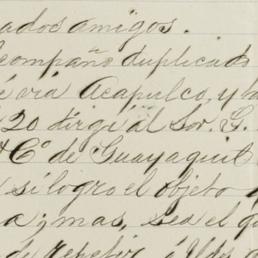 ados amigos.
compaño duplicado
é via Acapulco, y la
20 dirigí al Sor. G.
& Cº de Guayaquil
si logro el objeto
a; mas, sea el q
de repetir á Uds.